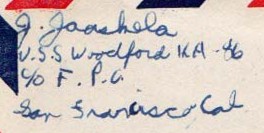 J. Jaashela
U.S.S Woodford KA-86
c/o F. P.O.
San Francisco Cal